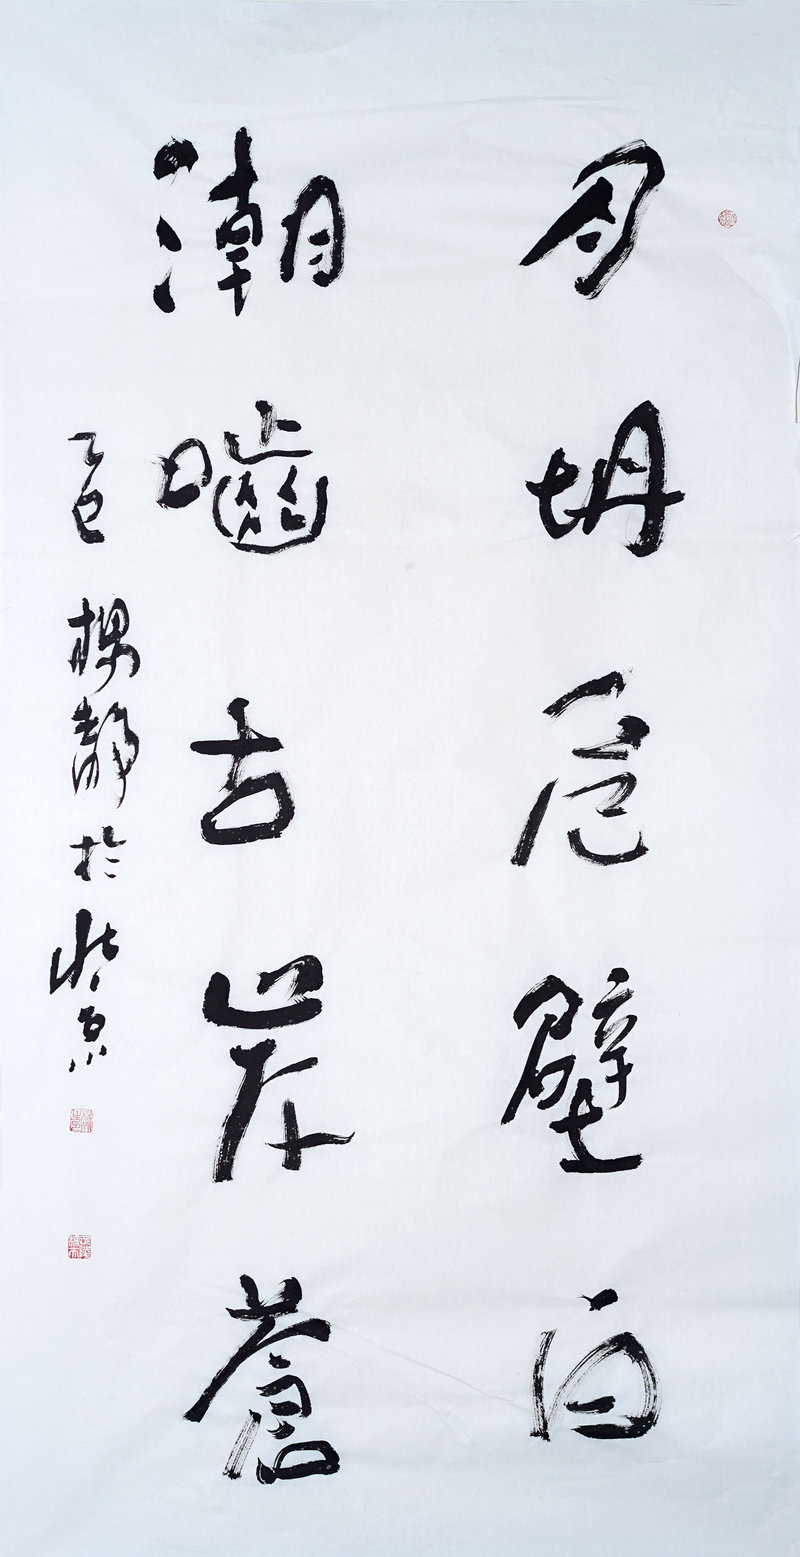 月坍危壁白
潮嚙古岸蒼
乙巳 楊靜於北京